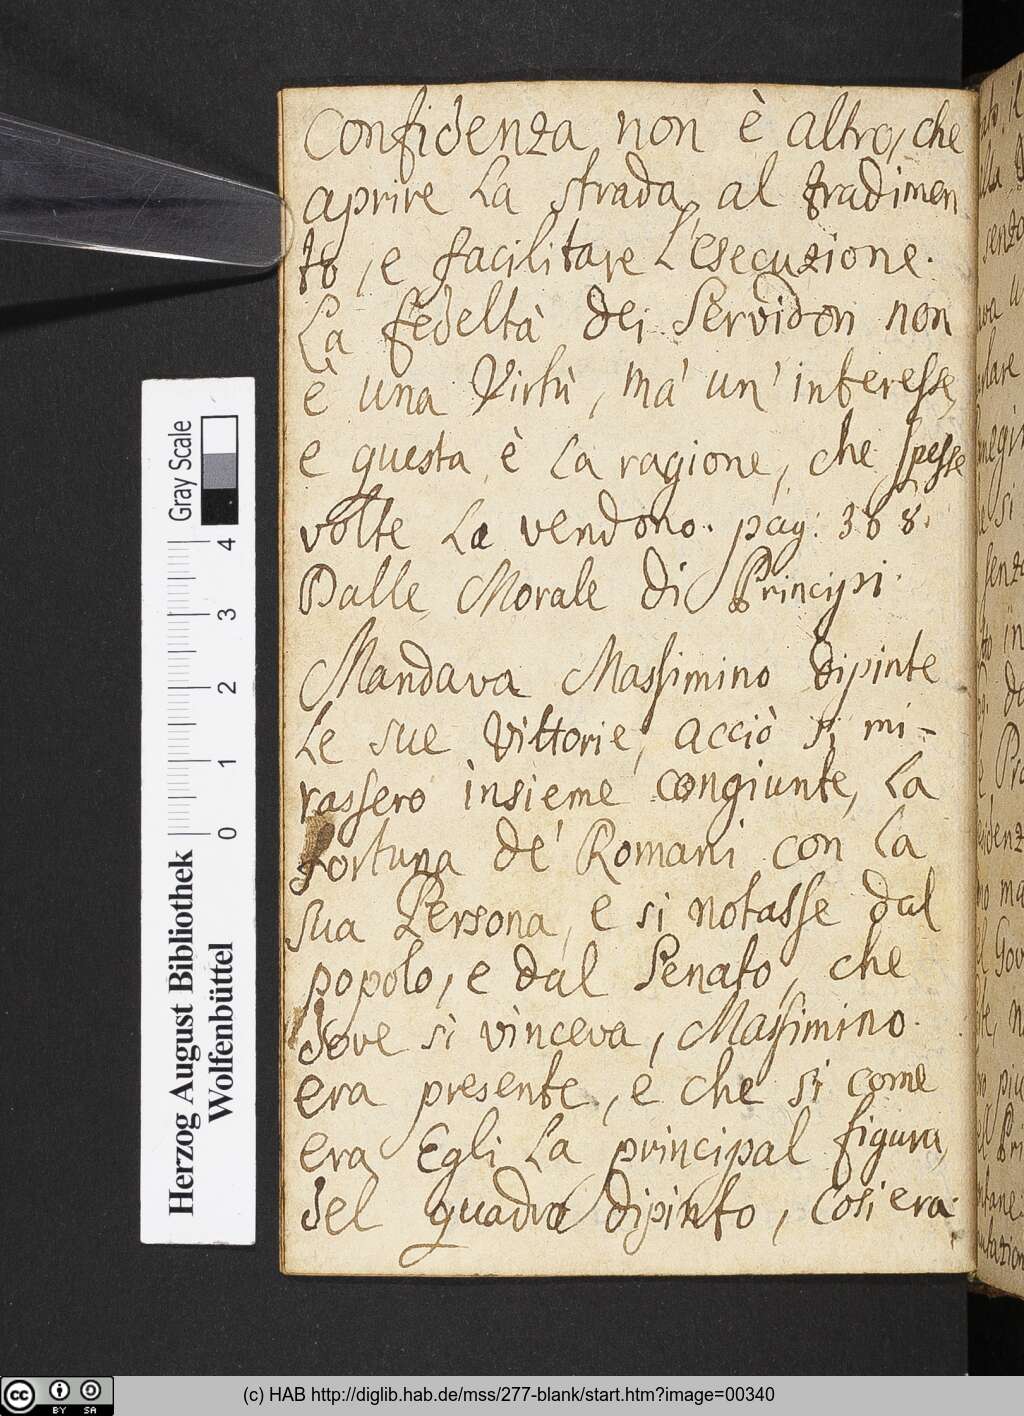 Confidenza non è altro, che
aprire La strada al tradimen
to, e facilitare L'esecuzione.
La fedeltà dei Servidori non
è una Virtù, mà un' interesse,
e questa è La ragione, che spesse
volte La vendono. pag: 368.
Dalle Morale di Principi.
Mandava Massimino dipinte
Le sue Vittorie, acciò si mi-
rassero insieme congiunte, La
fortuna de' Romani con La
sua Persona, e si notasse dal
popolo, e dal Senato, che
dove si vinceva, Massimino
era presente, e che si come
era Egli La principal figura
del quadro dipinto, Cosi era
Gray Scale
4
3
2
1
0
Herzog August Bibliothek
Wolfenbüttel
cc BY SA
(c) HAB http://diglib.hab.de/mss/277-blank/start.htm?image=00340